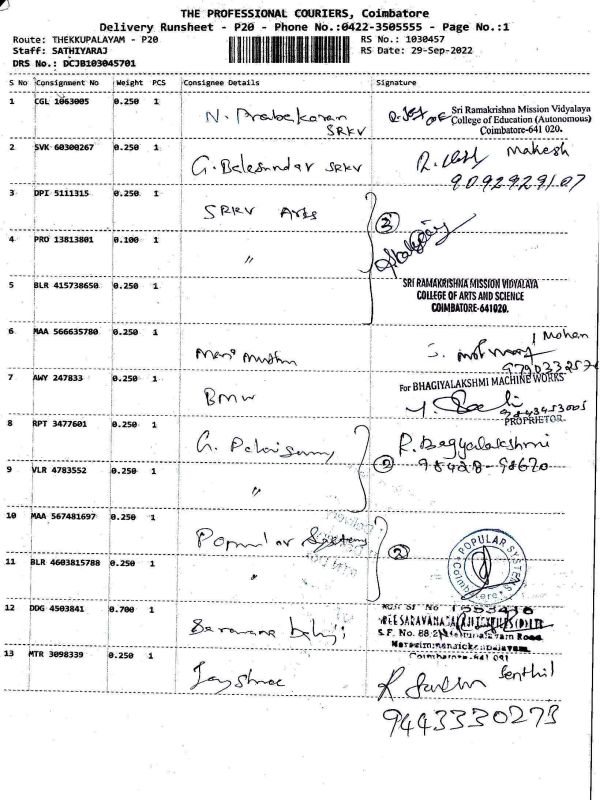 THE PROFESSIONAL COURIERS, Coimbatore
Delivery Runsheet - P20 - Phone No.:0422-3505555 - Page No.:1
Route: THEKKUPALAYAM - P20 RS No.: 1030457
Staff: SATHIYARAJ RS Date: 29-Sep-2022
DRS No.: DCJB103045701
S No Consignment No Weight PCS Consignee Details Signature
1 CGL 1063005 0.250 1 N. Prabakaran
SRKV
Sri Ramakrishna Mission Vidyalaya
College of Education (Autonomous)
Coimbatore-641 020.
2 SVK 60300267 0.250 1 G. Balesundar SRKV Mahesh
9092929107
3 DPI 5111315 0.250 1 SRKV Arts 3
4 PRO 13813801 0.100 1 "
5 BLR 415738650 0.250 1
SRI RAMAKRISHNA MISSION VIDYALAYA
COLLEGE OF ARTS AND SCIENCE
COIMBATORE-641020.
6 MAA 566635780 0.250 1 Mohan
7 AWY 247833 0.250 1 BMW
For BHAGIYALAKSHMI MACHINE WORKS
9843453005
PROPRIETOR
8 RPT 3477601 0.250 1 G. Palaisamy R. Bagyalakshmi
9 VLR 4783552 0.250 1 " 2 98428-98670
10 MAA 567481697 0.250 1 Popular Systems 2
11 BLR 4603815788 0.250 1 " POPULAR SYSTEMS
Coimbatore
12 DDG 4503841 0.700 1 Saravana
S.F. No. 88,2
Coimbatore-641 031
13 MTR 3098339 0.250 1 Jayshree Senthil
9443330273